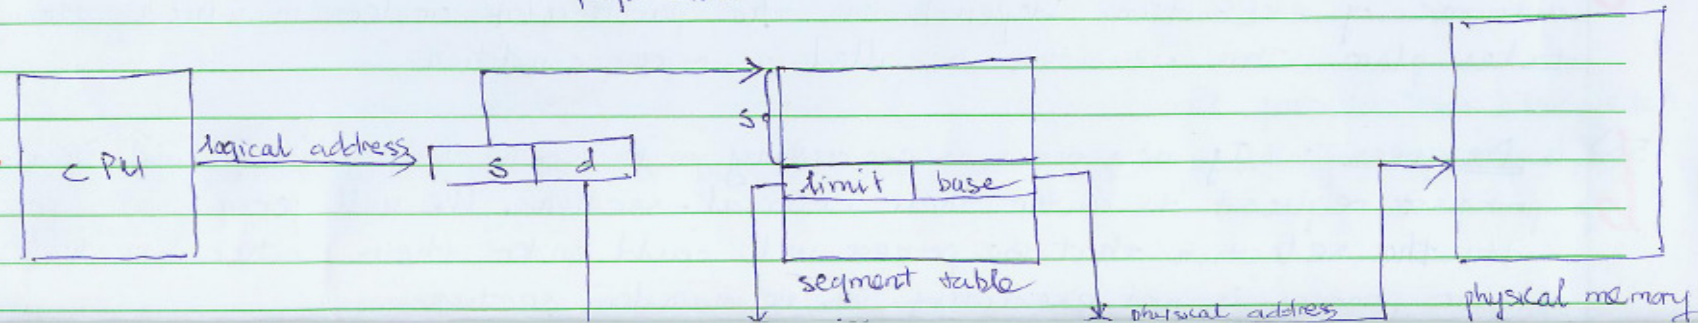 CPU
logical address
s d
s
limit base
segment table
physical address
physical memory